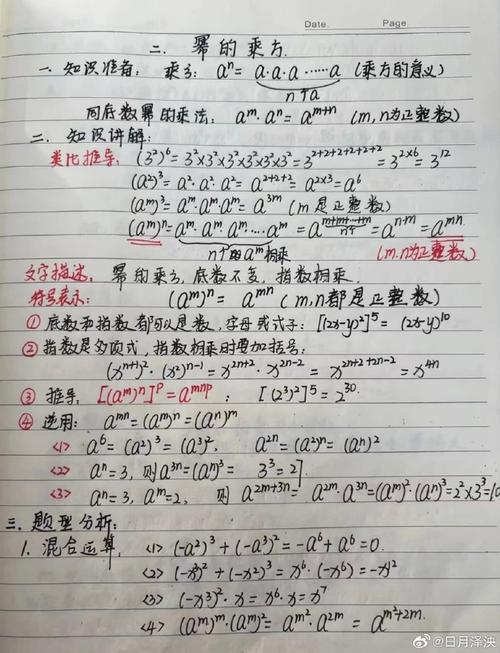 Date. Page.
二. 幂的乘方.
一. 知识准备: 乘方: aⁿ = a·a·a……a (乘方的意义)
n个a
同底数幂的乘法: aᵐ·aⁿ = aᵐ⁺ⁿ (m,n为正整数)
二. 知识讲解:
类比推导: (3²)⁶ = 3²×3²×3²×3²×3²×3² = 3²⁺²⁺²⁺²⁺²⁺² = 3²ˣ⁶ = 3¹²
(a²)³ = a²·a²·a² = a²⁺²⁺² = a²ˣ³ = a⁶
(aᵐ)³ = aᵐ·aᵐ·aᵐ = a³ᵐ (m是正整数)
(aᵐ)ⁿ = aᵐ·aᵐ·aᵐ……aᵐ = aᵐ⁺ᵐ⁺…⁺ᵐ = aⁿ·ᵐ = aᵐⁿ
n个
n个的aᵐ相乘 (m.n为正整数)
文字描述: 幂的乘方, 底数不变, 指数相乘.
符号表示: (aᵐ)ⁿ = aᵐⁿ (m,n都是正整数)
① 底数和指数都可以是数, 字母或式子: [(2x-y)²]⁵ = (2x-y)¹⁰
② 指数是多项式, 指数相乘时要加括号:
(xⁿ⁺¹)²·(x²)ⁿ⁻¹ = x²ⁿ⁺²·x²ⁿ⁻² = x²ⁿ⁺²⁺²ⁿ⁻² = x⁴ⁿ
③ 推导, [(aᵐ)ⁿ]ᵖ = aᵐⁿᵖ; [(2³)²]⁵ = 2³⁰.
④ 逆用: aᵐⁿ = (aᵐ)ⁿ = (aⁿ)ᵐ
<1> a⁶ = (a²)³ = (a³)², a²ⁿ = (a²)ⁿ = (aⁿ)²
<2> aⁿ = 3, 则a³ⁿ = (aⁿ)³ = 3³ = 27
<3> aⁿ = 3, aᵐ = 2, 则 a²ᵐ⁺³ⁿ = a²ᵐ·a³ⁿ = (aᵐ)²·(aⁿ)³ = 2²×3³ = 10
三. 题型分析:
1. 混合运算, <1> (-a²)³ + (-a³)² = -a⁶ + a⁶ = 0.
<2> (-x³)² + (-x²)³ = x⁶·(-x⁶) = -x¹²
<3> (-x³)²·x = x⁶·x = x⁷
<4> (aᵐ)ᵐ·(aᵐ)² = aᵐ²·a²ᵐ = aᵐ²⁺²ᵐ.
@日月泽泱